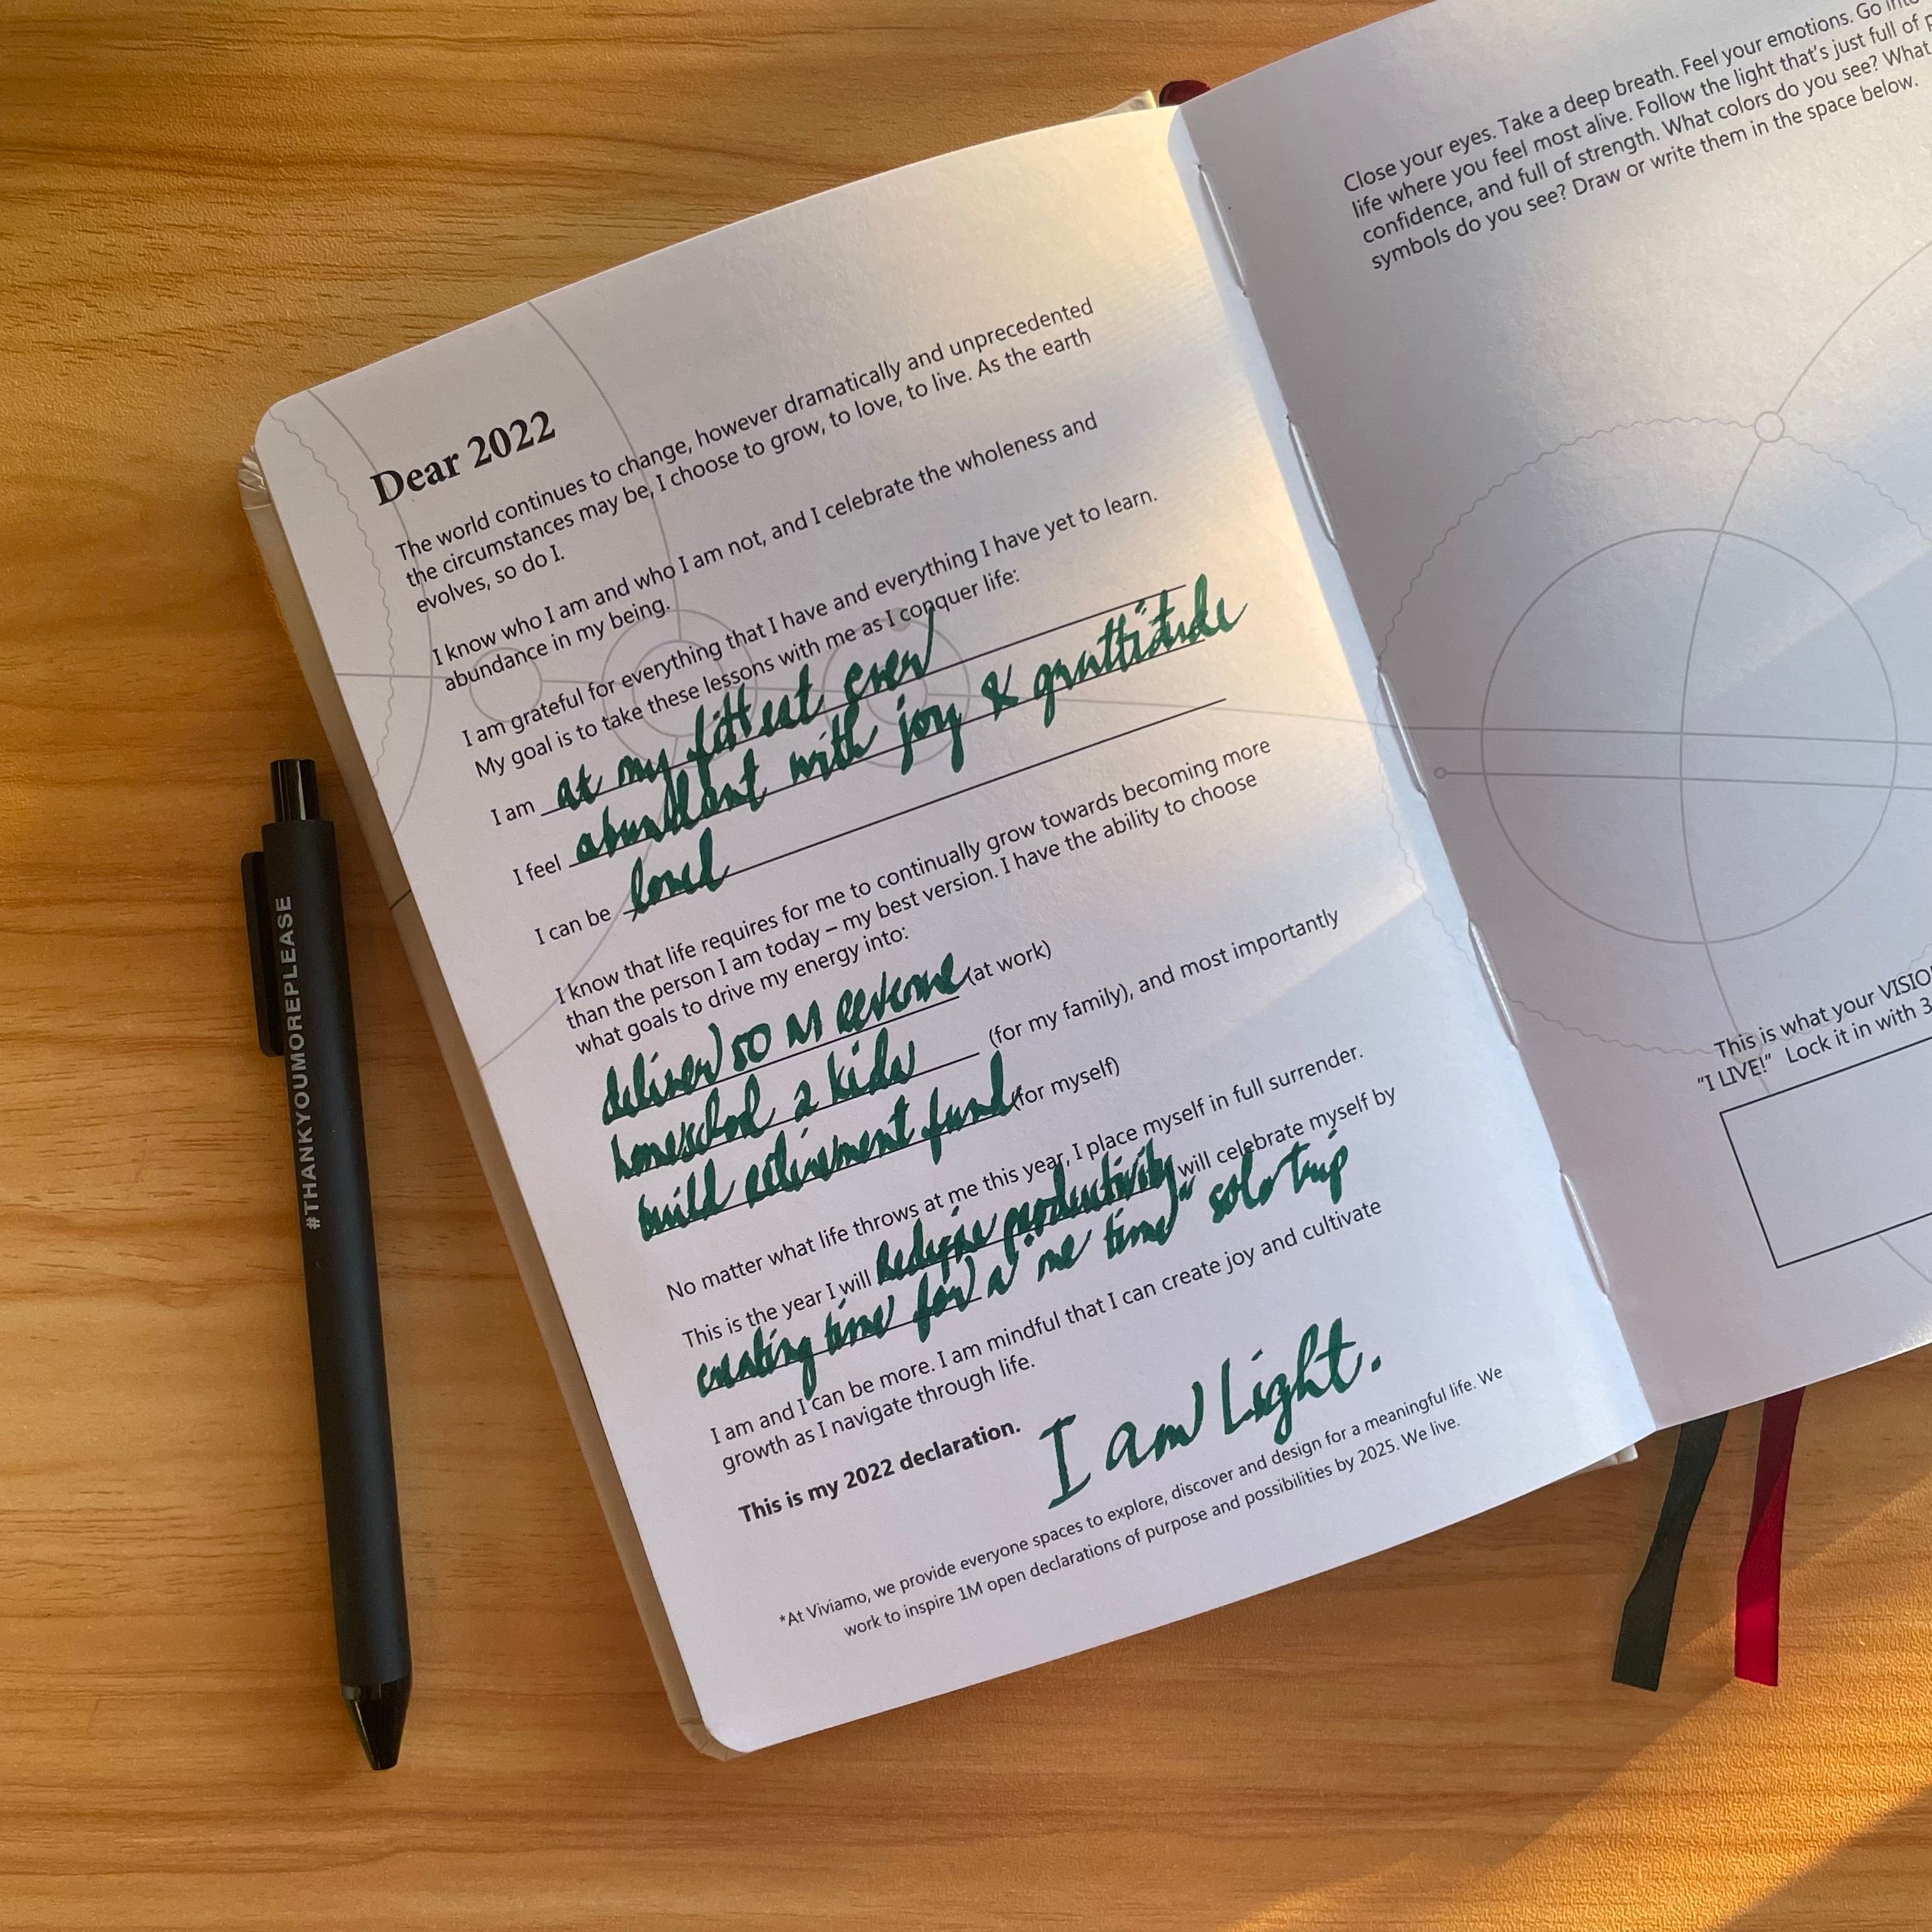 Dear 2022
The world continues to change, however dramatically and unprecedented
the circumstances may be, I choose to grow, to love, to live. As the earth
evolves, so do I.
I know who I am and who I am not, and I celebrate the wholeness and
abundance in my being.
I am grateful for everything that I have and everything I have yet to learn.
My goal is to take these lessons with me as I conquer life:
I am at my fittest ever
I feel abundant with joy & grattitude
I can be loved
I know that life requires for me to continually grow towards becoming more
than the person I am today – my best version. I have the ability to choose
what goals to drive my energy into:
deliver 50 M revenue (at work)
homeschool 2 kids (for my family), and most importantly
build retirement fund (for myself)
No matter what life throws at me this year, I place myself in full surrender.
This is the year I will Redefine productivity. will celebrate myself by
creating time for a "me time" solo trip
I am and I can be more. I am mindful that I can create joy and cultivate
growth as I navigate through life.
This is my 2022 declaration. I am Light.
*At Viviamo, we provide everyone spaces to explore, discover and design for a meaningful life. We
work to inspire 1M open declarations of purpose and possibilities by 2025. We live.
Close your eyes. Take a deep breath. Feel your emotions. Go into
life where you feel most alive. Follow the light that's just full of
confidence, and full of strength. What colors do you see? What
symbols do you see? Draw or write them in the space below.
This is what your VISIO
"I LIVE!" Lock it in with 3
#THANKYOUMOREPLEASE